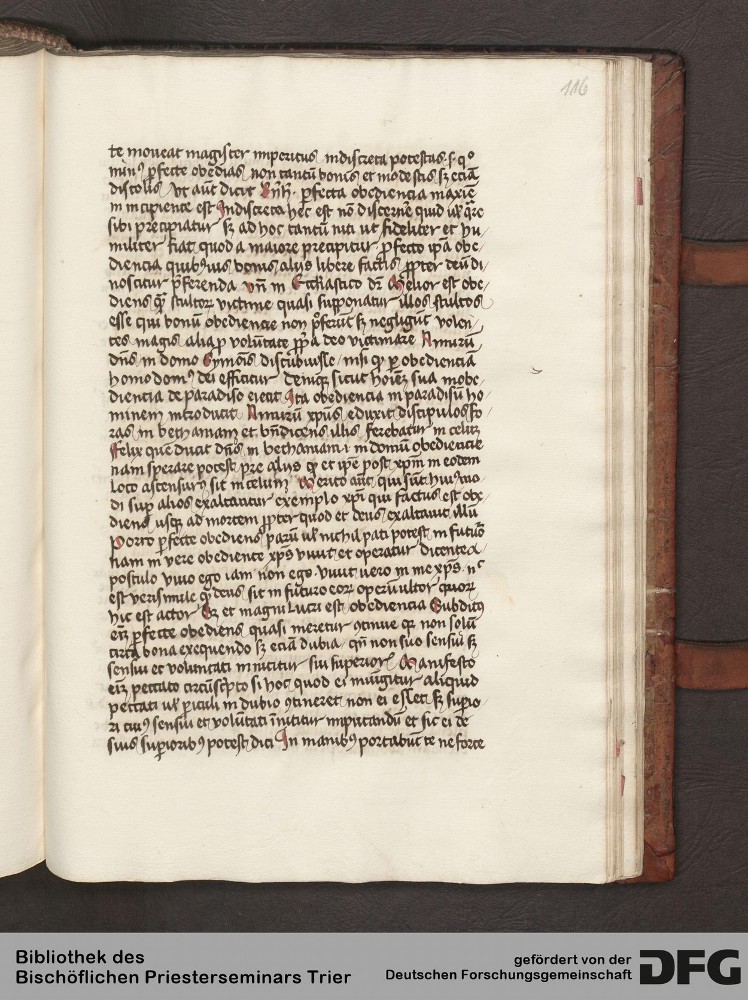 116
te moueat magister imperitus indiscreta potestas .s. qº
minꝰ ꝑfecte obedias non tantū bonis et modestis sꝫ eciā
discolis Vt aūt dicit ꝑfecta obediencia maxīe
in incipiente est Indiscreta hec est nō discernē quid uł quē
sibi precipiatur sꝫ ad hoc tantū niti ut fideliter et hu
militer fiat quod a maiore precipitur ꝑfecto ip̄a obe
diencia quibꝰuis bonis alijs libere factis ꝓpter deū di
noscitur p̄ferenda vn̄ in Ecclīastico dr̄ Melior est obe
diens qꝫ̄ stultoꝝ victime quasi supponatur illos stultos
esse qui bonū obediencie non p̄ferūt sꝫ negligūt volen
tes magis aliaꝙ volūtate ꝓp̄a deo victimare Amirū
dn̄s in domo Symonis discubuisse nisi qꝫ ꝑ obedienciā
homo domꝰ dei efficitur Deniqꝫ sicut hoīeꝫ sua inobe
diencia de paradiso eiecit Ita obediencia in paradisū ho
minem introducit Amirū xp̄us eduxit discipulos fo
ras in bethaniam et bn̄dicens illis ferebatur in celū
Felix quē ducit dn̄s in bethaniam .i. in domū obediencie
nam sperare potest pre alijs qꝫ et ip̄e post xp̄m in eodem
loco ascensurꝰ sit in celum Merito aūt qui sūt huiꝰmo
di suꝑ alios exaltantur exemplo xp̄i qui factus est obe
diens usqꝫ ad mortem ꝓpter quod et deus exaltauit illū
Porro ꝑfecte obediens parū uł nichil pati potest in futuro
nam in vere obediente xp̄s viuit et operatur dicente a
postolo viuo ego iam non ego . viuit uero in me xp̄s . nᶜ
est verisimile qꝫ deus sit in futuro eoꝝ operū ultor quoꝝ
hic est actor Sꝫ et magni lucri est obediencia Subditꝰ
em̄ ꝑfecte obediens quasi meretur ꝯtinue qꝛ non solū
circa bona exequendo sꝫ eciā dubia qn̄ non suo sensui sꝫ
sensui et voluntati innititur sui superioris Manifesto
em̄ peccato circūscͥpto si hoc quod ei iniūgitur aliquid
peccati uł ꝑiculi in dubio ꝯtineret non ei esset sꝫ supio
ri cuiꝰ sensui et volūtati īnititur imputandū et sic ei de
suis superioribꝰ potest dici In manibꝰ portabūt te ne forte
Bibliothek des
Bischöflichen Priesterseminars Trier
gefördert von der
Deutschen Forschungsgemeinschaft
DFG